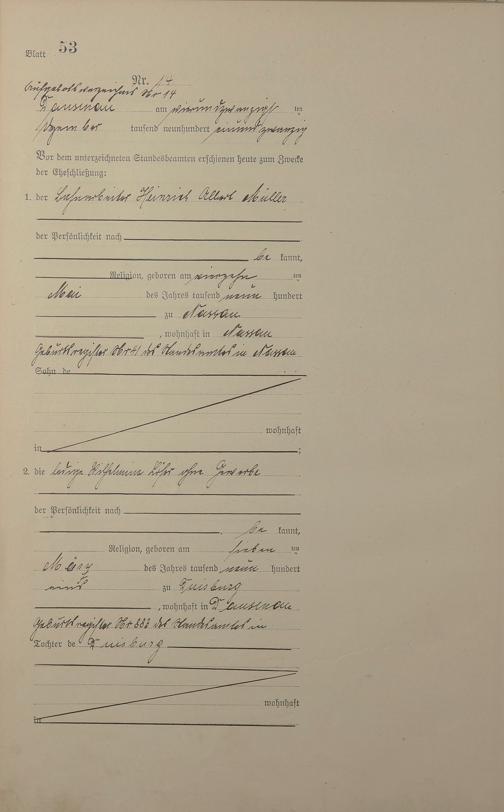 Blatt 53
Nr. 14
Aufgebotsverzeichnis Nr 14
Dausenau am vierundzwanzigs ten
Dezember tausend neunhundert einundzwanzig
Vor dem unterzeichneten Standesbeamten erschienen heute zum Zwecke
der Eheschließung:
1. der Bahnarbeiter Heinrich Albert Müller
der Persönlichkeit nach
be kannt,
Religion, geboren am vierzehn ten
Mai des Jahres tausend neun hundert
zu Nassau
, wohnhaft in Nassau
Geburtsregister Nr 41 des Standesamtes in Nassau
Sohn de
wohnhaft
in ;
2. die ledige Wilhelmine ohne Gewerbe
der Persönlichkeit nach
be kannt,
Religion, geboren am sieben ten
März des Jahres tausend neun hundert
eins zu Duisburg
, wohnhaft in Dausenau
Geburtsregister Nr des Standesamtes in
Tochter de Duisburg
wohnhaft
in